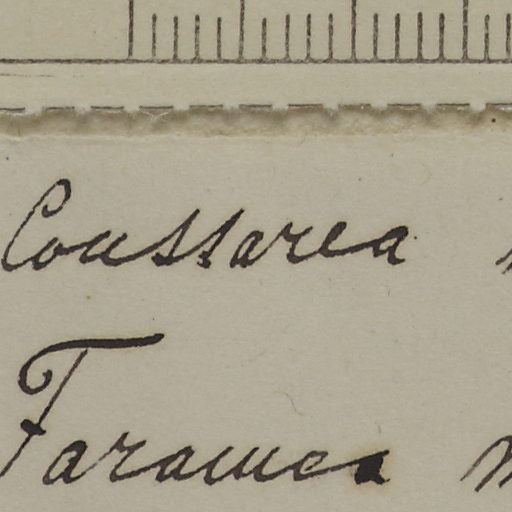 Coussarea
Faramea